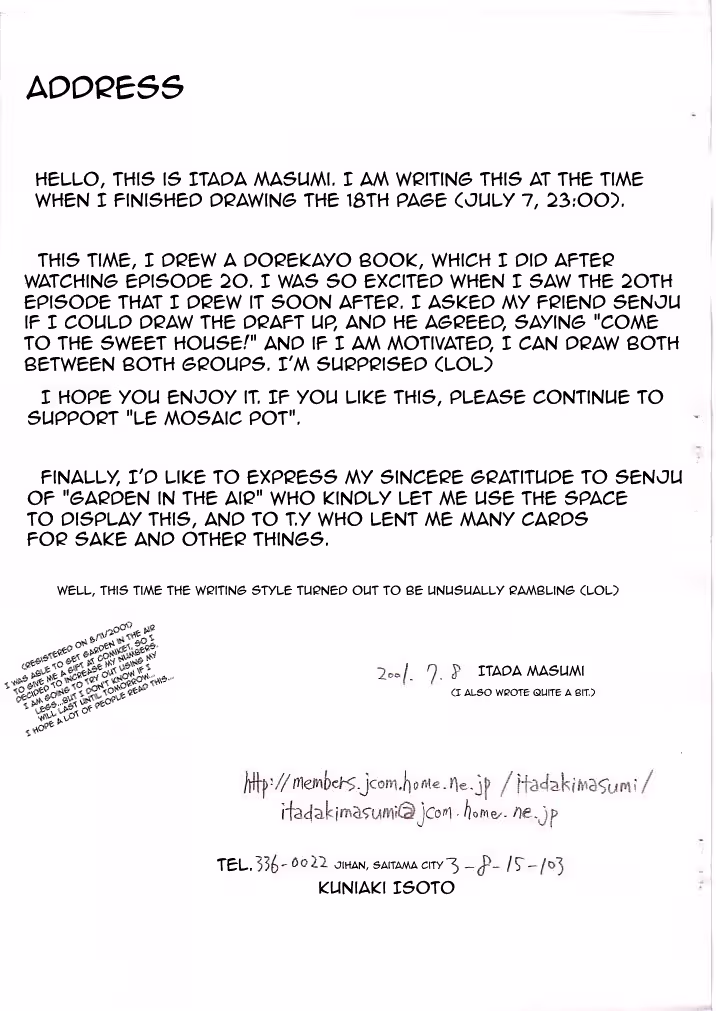 ADDRESS
HELLO, THIS IS ITADA MASUMI. I AM WRITING THIS AT THE TIME
WHEN I FINISHED DRAWING THE 18TH PAGE (JULY 7, 23:00).
THIS TIME, I DREW A DOREKAYO BOOK, WHICH I DID AFTER
WATCHING EPISODE 20. I WAS SO EXCITED WHEN I SAW THE 20TH
EPISODE THAT I DREW IT SOON AFTER. I ASKED MY FRIEND SENJU
IF I COULD DRAW THE DRAFT UP, AND HE AGREED, SAYING "COME
TO THE SWEET HOUSE!" AND IF I AM MOTIVATED, I CAN DRAW BOTH
BETWEEN BOTH GROUPS. I'M SURPRISED (LOL)
I HOPE YOU ENJOY IT. IF YOU LIKE THIS, PLEASE CONTINUE TO
SUPPORT "LE MOSAIC POT".
FINALLY, I'D LIKE TO EXPRESS MY SINCERE GRATITUDE TO SENJU
OF "GARDEN IN THE AIR" WHO KINDLY LET ME USE THE SPACE
TO DISPLAY THIS, AND TO T.Y WHO LENT ME MANY CARDS
FOR SAKE AND OTHER THINGS.
WELL, THIS TIME THE WRITING STYLE TURNED OUT TO BE UNUSUALLY RAMBLING (LOL)
(REGISTERED ON 8/11/2001)
I WAS ABLE TO GET GARDEN IN THE AIR
TO GIVE ME A GIFT AT COMIKET, SO I
DECIDED TO INCREASE MY NUMBERS.
I AM GOING TO TRY OUT USING MY
LEGS...BUT I DON'T KNOW IF I
WILL LAST UNTIL TOMORROW...
I HOPE A LOT OF PEOPLE READ THIS...
2001. 7. 8 ITADA MASUMI
(I ALSO WROTE QUITE A BIT.)
http://members.jcom.home.ne.jp/itadakimasumi/
itadakimasumi@jcom.home.ne.jp
TEL. 336-0022 JIHAN, SAITAMA CITY 3-8-15-103
KUNIAKI ISOTO